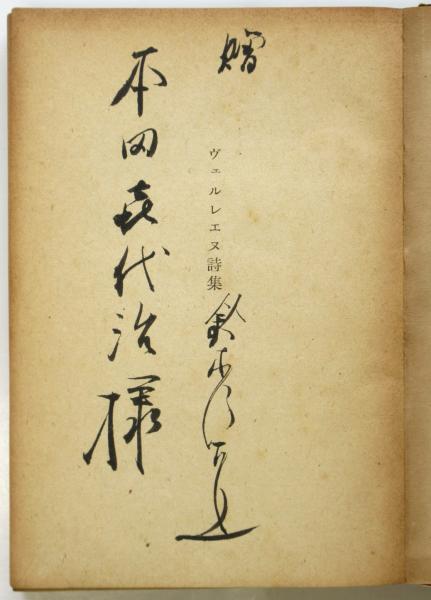 贈
ヴェルレエヌ詩集
鈴木信太郎
本田喜代治様